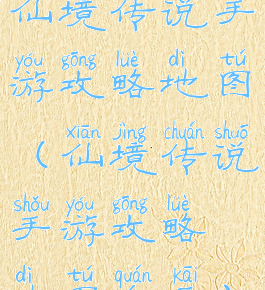 仙境传说手
yóu gōng luè dì tú
游攻略地图
xiān jìng chuán shuō
（仙境传说
shǒu yóu gōng luè
手游攻略
dì tú quán kāi